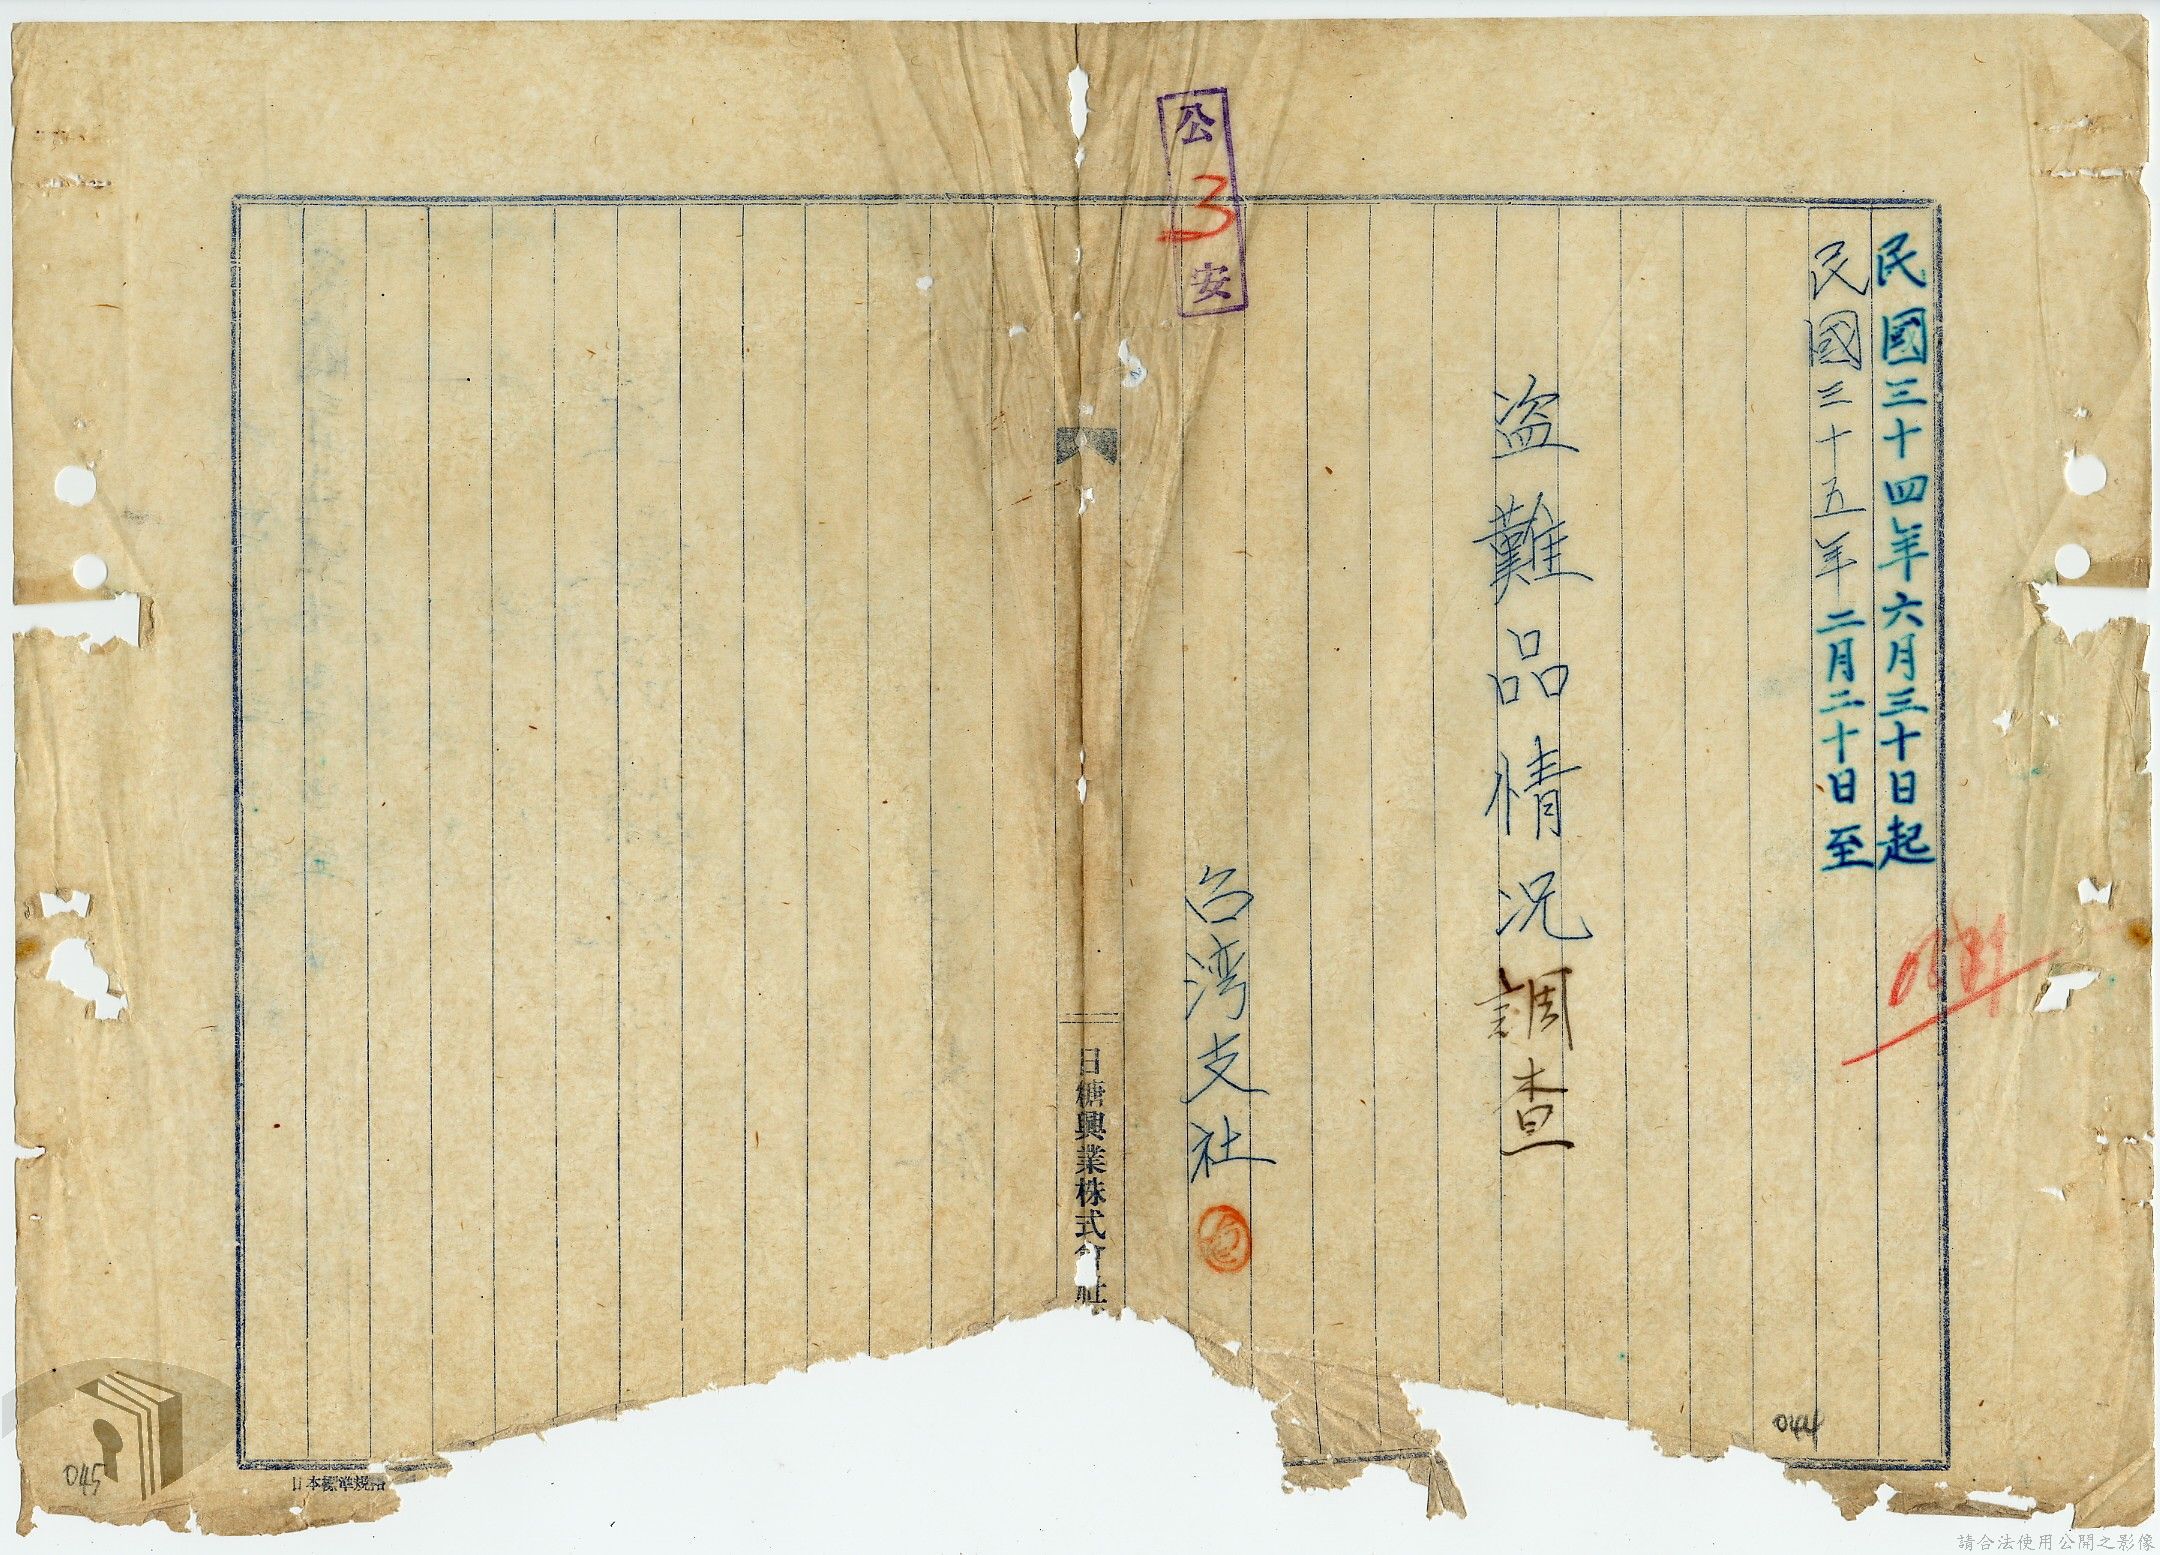 民國三十四年六月三十日起
民國三十五年二月二十日至
盗難品情况調查
公
3
安
台湾支社
日糖興業株式會社
日本標準規格
044
045
請合法使用公開之影像